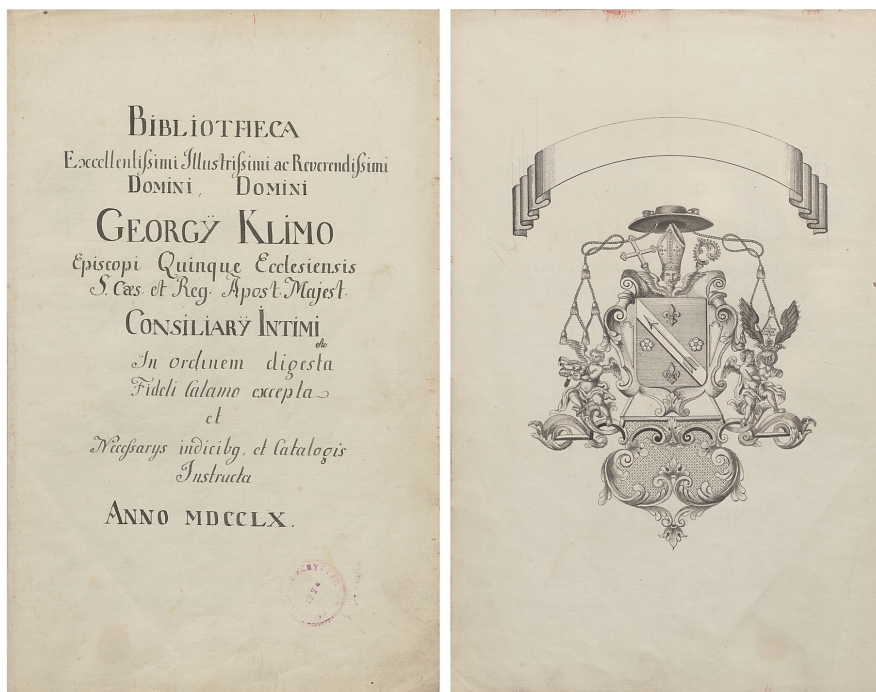 BIBLIOTHECA
Excellentiſsimi Illustriſsimi ac Reverendiſsimi
DOMINI, DOMINI
GEORGÿ KLIMO
Episcopi Quinque Ecclesiensis
S. Cæs. et Reg. Apost. Majest.
CONSILIARÿ INTIMI
etc
In ordinem digesta
Fideli Calamo excepta
et
Neceſsarys indicibg. et Catalogis
Instructa
ANNO MDCCLX.